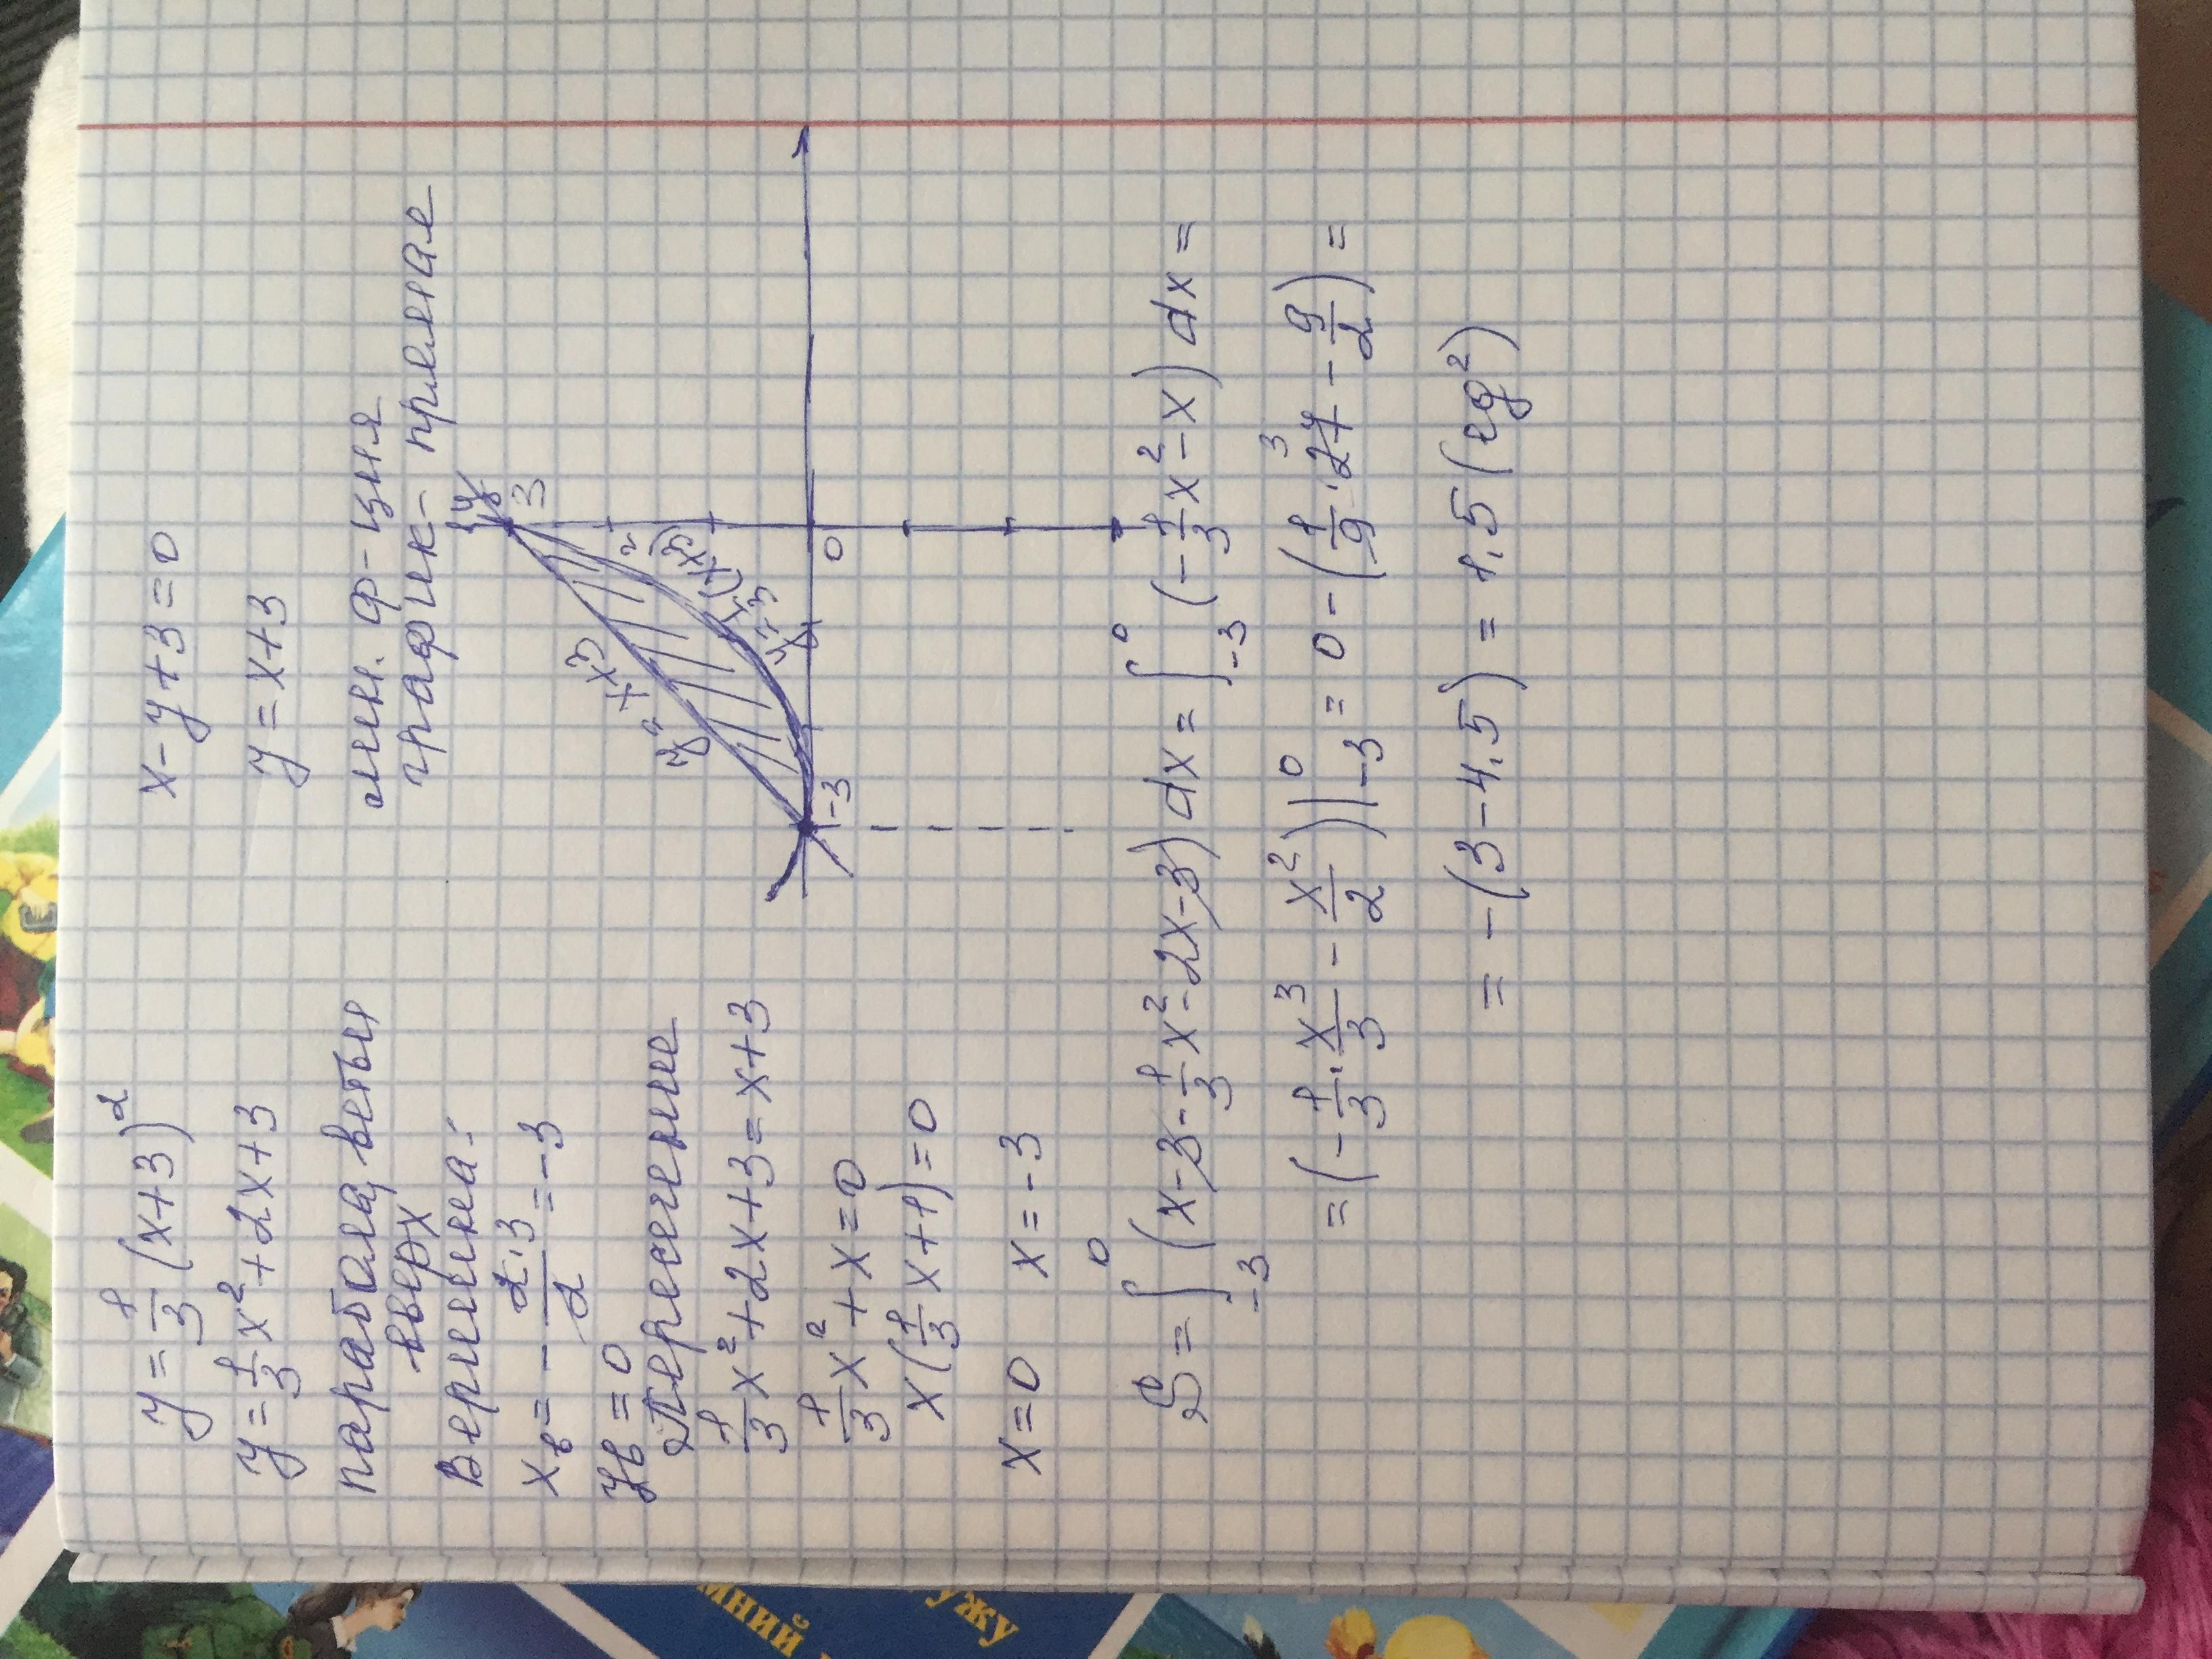 y = 1/3 (x+3)²
y = 1/3 x² + 2x + 3
парабола, ветви
вверх
Вершина:
xв = - 2·3/2 = -3
yв = 0
Пересечение
1/3 x² + 2x + 3 = x + 3
1/3 x² + x = 0
x(1/3 x + 1) = 0
x = 0   x = -3
x - y + 3 = 0
y = x + 3
лин. ф-ция
график - прямая
y
3
y = x+3
y = 1/3 (x+3)²
-3
0
S = ∫₋₃⁰ (x - 3 - 1/3 x² - 2x - 3) dx = ∫₋₃⁰ (- 1/3 x² - x) dx =
= (- 1/3 · x³/3 - x²/2) |₋₃⁰ = 0 - (1/9 · 27 3 - 9/2) =
= - (3 - 4,5) = 1,5 (ед²)
мний
ужу